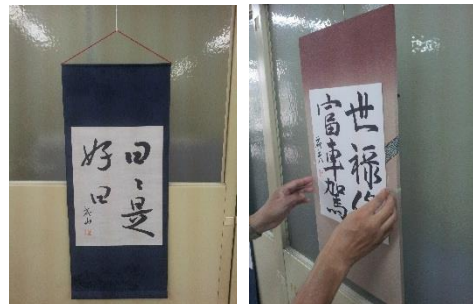 日々是
好日
世禄
富車駕